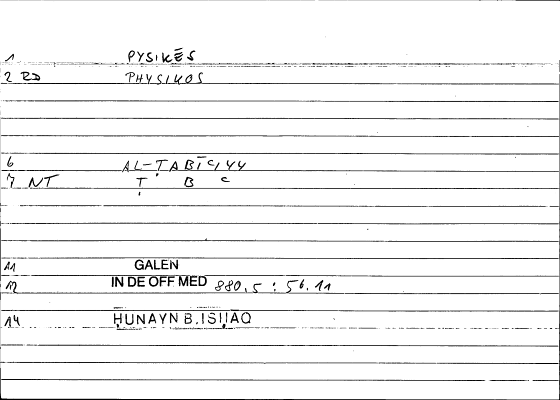 1 PYSIKĒS
2 RD PHYSIKOS
6 AL-ṬABĪʿIYY
7 NT Ṭ B ʿ
11 GALEN
12 IN DE OFF MED 880.5 : 56.11
14 ḤUNAYN B. ISḤAQ